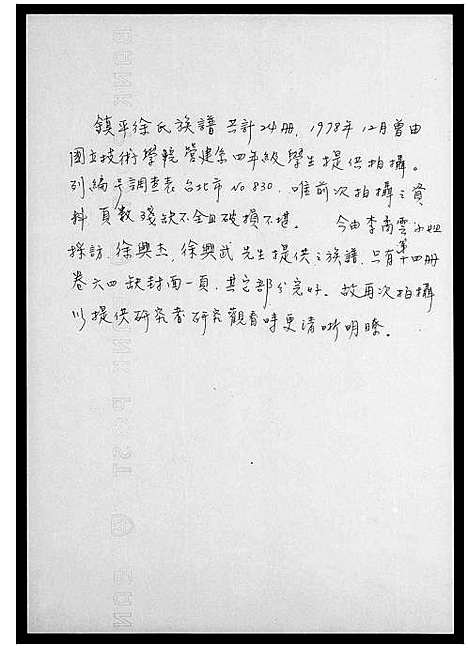 鎮平徐氏族譜 共計24册, 1978年12月曾由
國立技術學院 營建系四年級 學生提供拍攝。
列編号調查表台北市 No 830, 唯前次拍攝之資
料 頁數殘缺不全且破損不堪。 今由李南雲小姐
採訪. 徐興杰, 徐興武先生提供之族譜, 只有第十四册
卷六四缺封面一頁, 其它部分完好。故再次拍攝
以提供研究者研究觀看時更清晰明瞭。